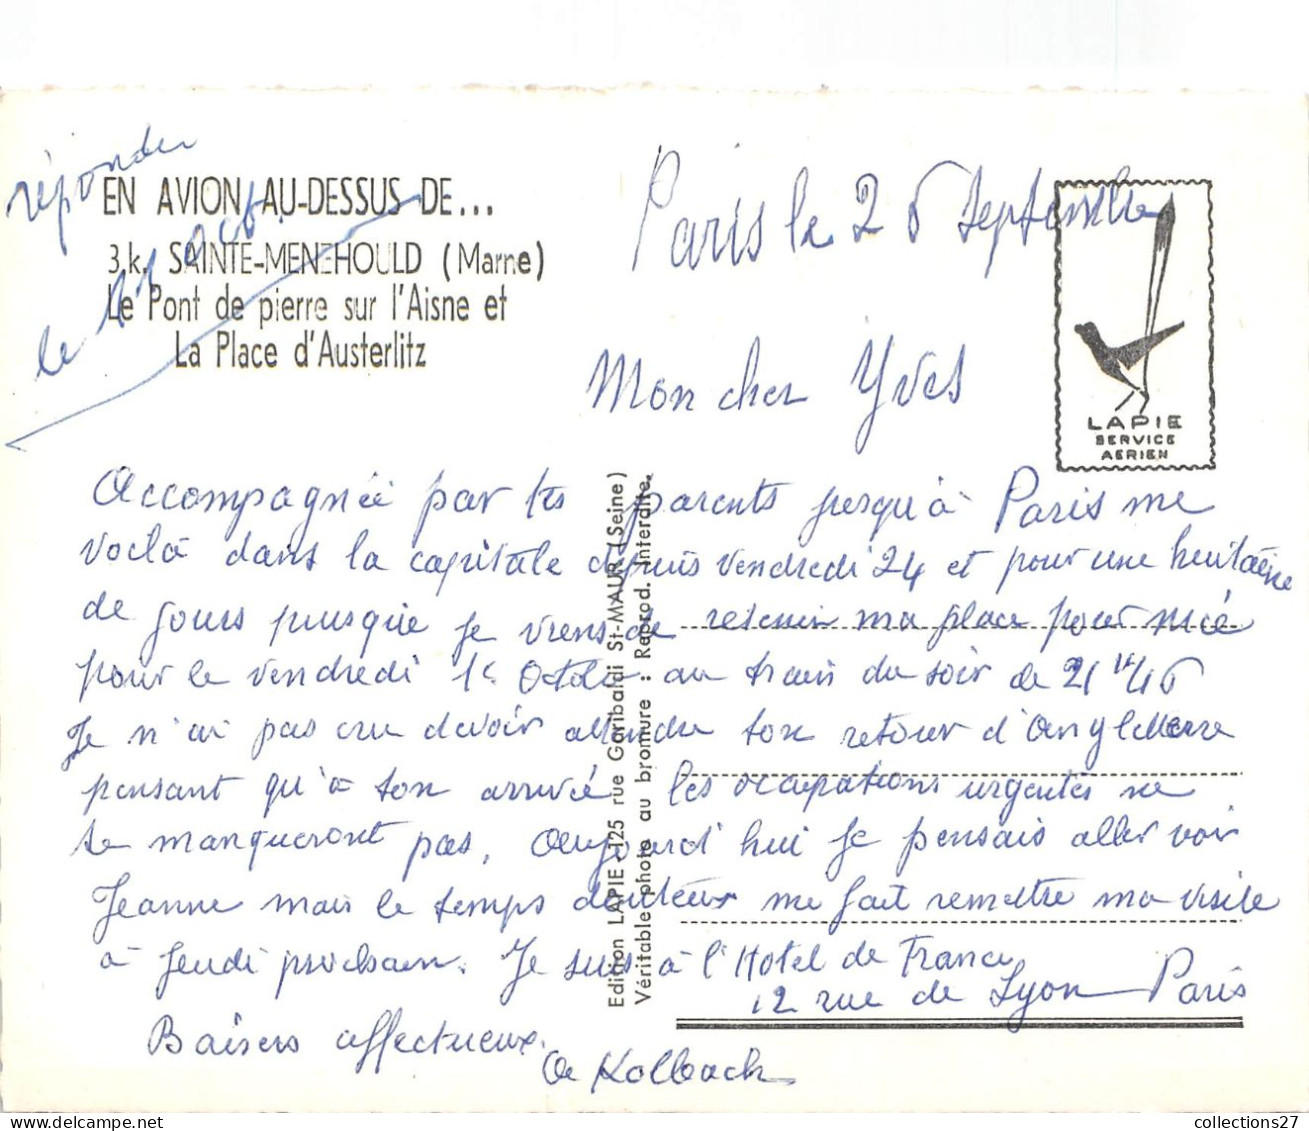 réponder
le 11 oct.
EN AVION AU-DESSUS DE...
3.k. SAINTE-MENEHOULD (Marne)
Le Pont de pierre sur l'Aisne et
La Place d'Austerlitz
Paris le 26 Septembre
LAPIE
SERVICE
AERIEN
Mon cher Yves
Accompagnée par tes parents jusqu'à Paris me
voilà dans la capitale depuis vendredi 24 et pour une huitaine
de jours puisque je viens de retenir ma place pour
pour le vendredi 1er Octobre au train du soir de 21h46
Je n'ai pas cru devoir attendre ton retour d'Angleterre
pensant qu'à ton arrivée les occupations urgentes ne
te manqueront pas. Aujourd'hui je pensais aller voir
Jeanne mais le temps douteux me fait remettre ma visite
à Jeudi prochain. Je suis à l'Hotel de France
12 rue de Lyon Paris
Baisers affectueux.
A Kolbach
Edition LAPIE 125 rue Garibaldi St-MAUR (Seine)
Véritable photo au bromure : Reprod. Interdite.
collections27